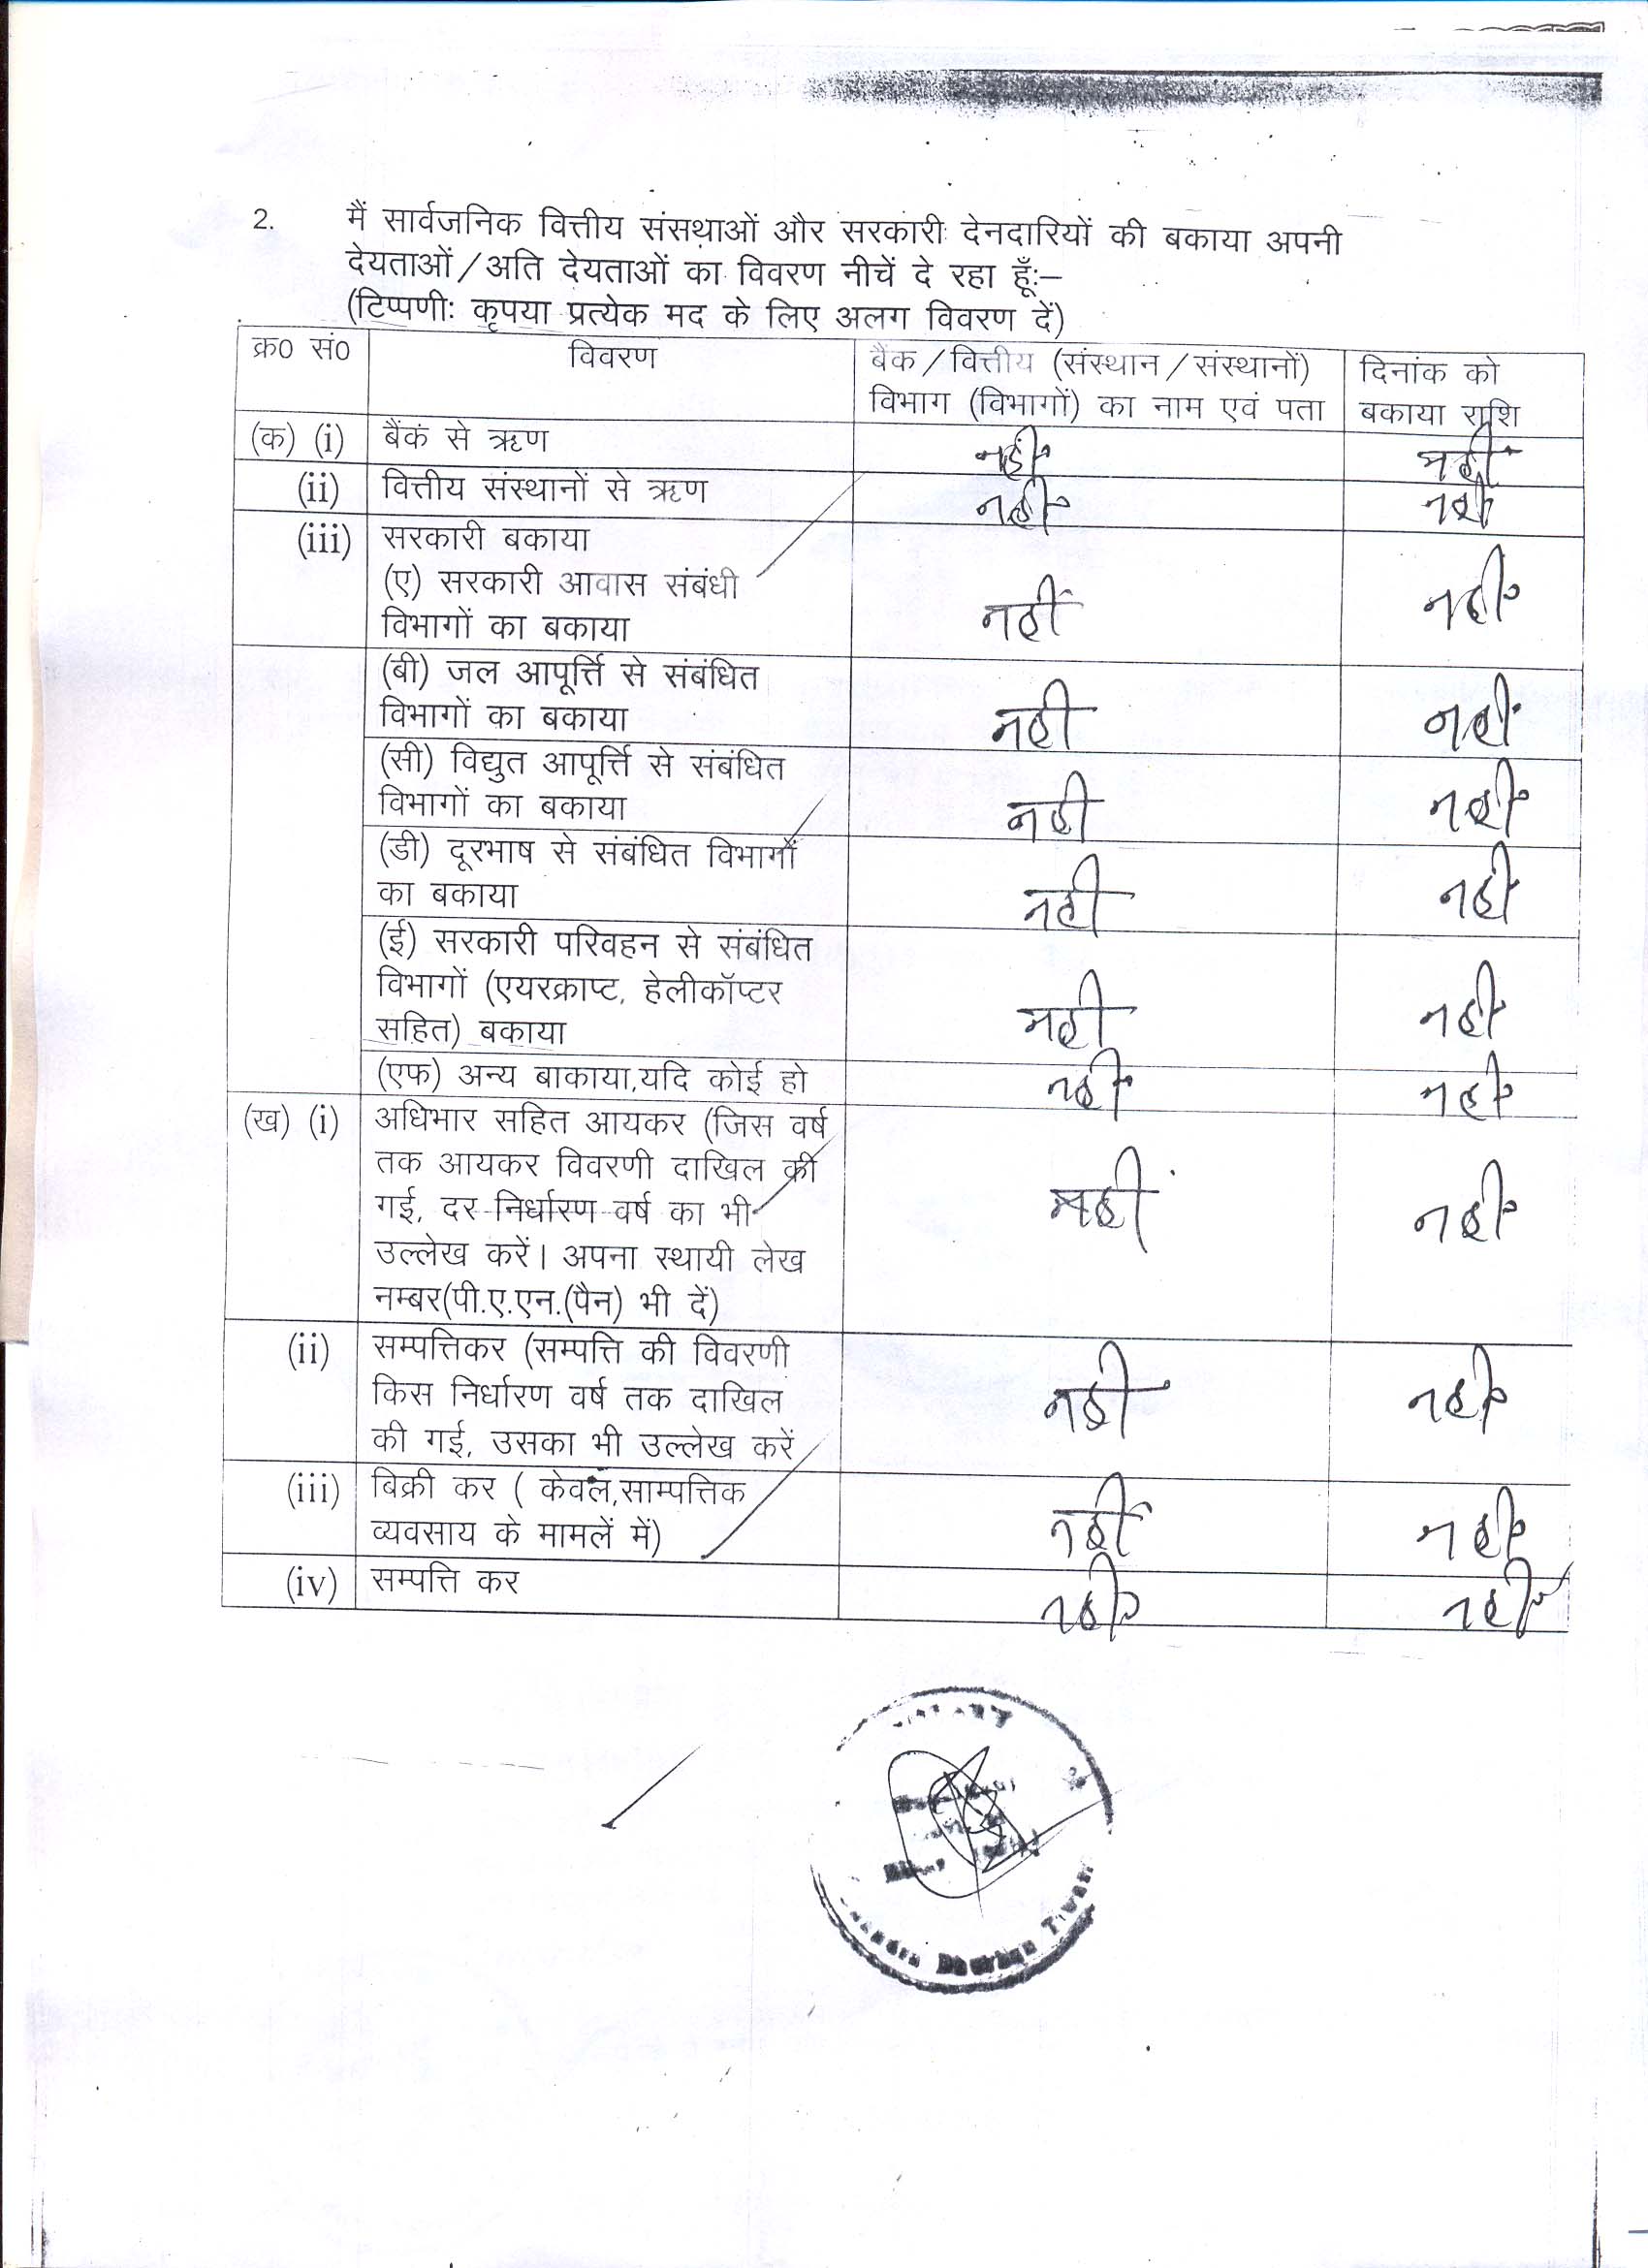 2. मैं सार्वजनिक वित्तीय संसथाओं और सरकारी देनदारियों की बकाया अपनी
देयताओं/अति देयताओं का विवरण नीचें दे रहा हूँः–
(टिप्पणीः कृपया प्रत्येक मद के लिए अलग विवरण दें)
क्र0 सं0 विवरण बैंक/वित्तीय (संस्थान/संस्थानों) दिनांक को
विभाग (विभागों) का नाम एवं पता बकाया राशि
(क) (i) बैंकं से ऋण नहीं नहीं
(ii) वित्तीय संस्थानों से ऋण नही नही
(iii) सरकारी बकाया
(ए) सरकारी आवास संबंधी
विभागों का बकाया नहीं नही
(बी) जल आपूर्त्ति से संबंधित
विभागों का बकाया नही नही
(सी) विद्युत आपूर्त्ति से संबंधित
विभागों का बकाया नही नही
(डी) दूरभाष से संबंधित विभागों
का बकाया नही नही
(ई) सरकारी परिवहन से संबंधित
विभागों (एयरक्राप्ट, हेलीकॉप्टर
सहित) बकाया नही नही
(एफ) अन्य बाकाया,यदि कोई हो नही नही
(ख) (i) अधिभार सहित आयकर (जिस वर्ष
तक आयकर विवरणी दाखिल की
गई, दर निर्धारण वर्ष का भी नही नही
उल्लेख करें। अपना स्थायी लेख
नम्बर(पी.ए.एन.(पैन) भी दें)
(ii) सम्पत्तिकर (सम्पत्ति की विवरणी
किस निर्धारण वर्ष तक दाखिल नही नही
की गई, उसका भी उल्लेख करें
(iii) बिक्री कर ( केवल,साम्पत्तिक
व्यवसाय के मामलें में) नहीं नही
(iv) सम्पत्ति कर नही नही